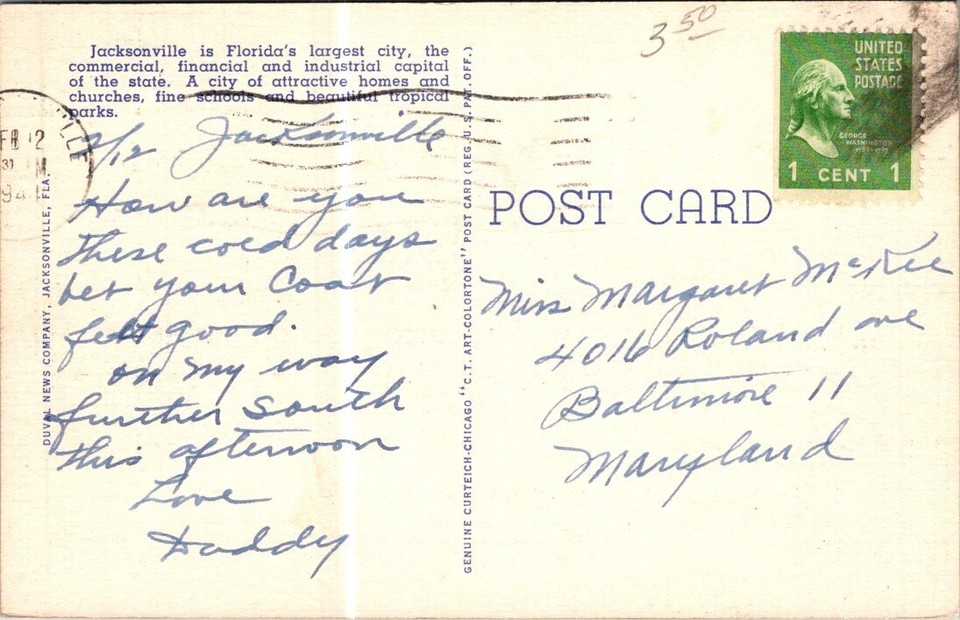 Jacksonville is Florida's largest city, the
commercial, financial and industrial capital
of the state. A city of attractive homes and
churches, fine schools and beautiful tropical
parks.
2/12 Jacksonville
How are you
these cold days
bet your Coat
felt good.
on my way
further south
this afternoon
Love
Daddy
DUVAL NEWS COMPANY, JACKSONVILLE, FLA.
GENUINE CURTEICH-CHICAGO "C.T. ART-COLORTONE" POST CARD (REG. U.S. PAT. OFF.)
3 50
UNITED
STATES
POSTAGE
GEORGE
WASHINGTON
1 CENT 1
POST CARD
Miss Margaret McKee
4016 Roland ave
Baltimore 11
Maryland